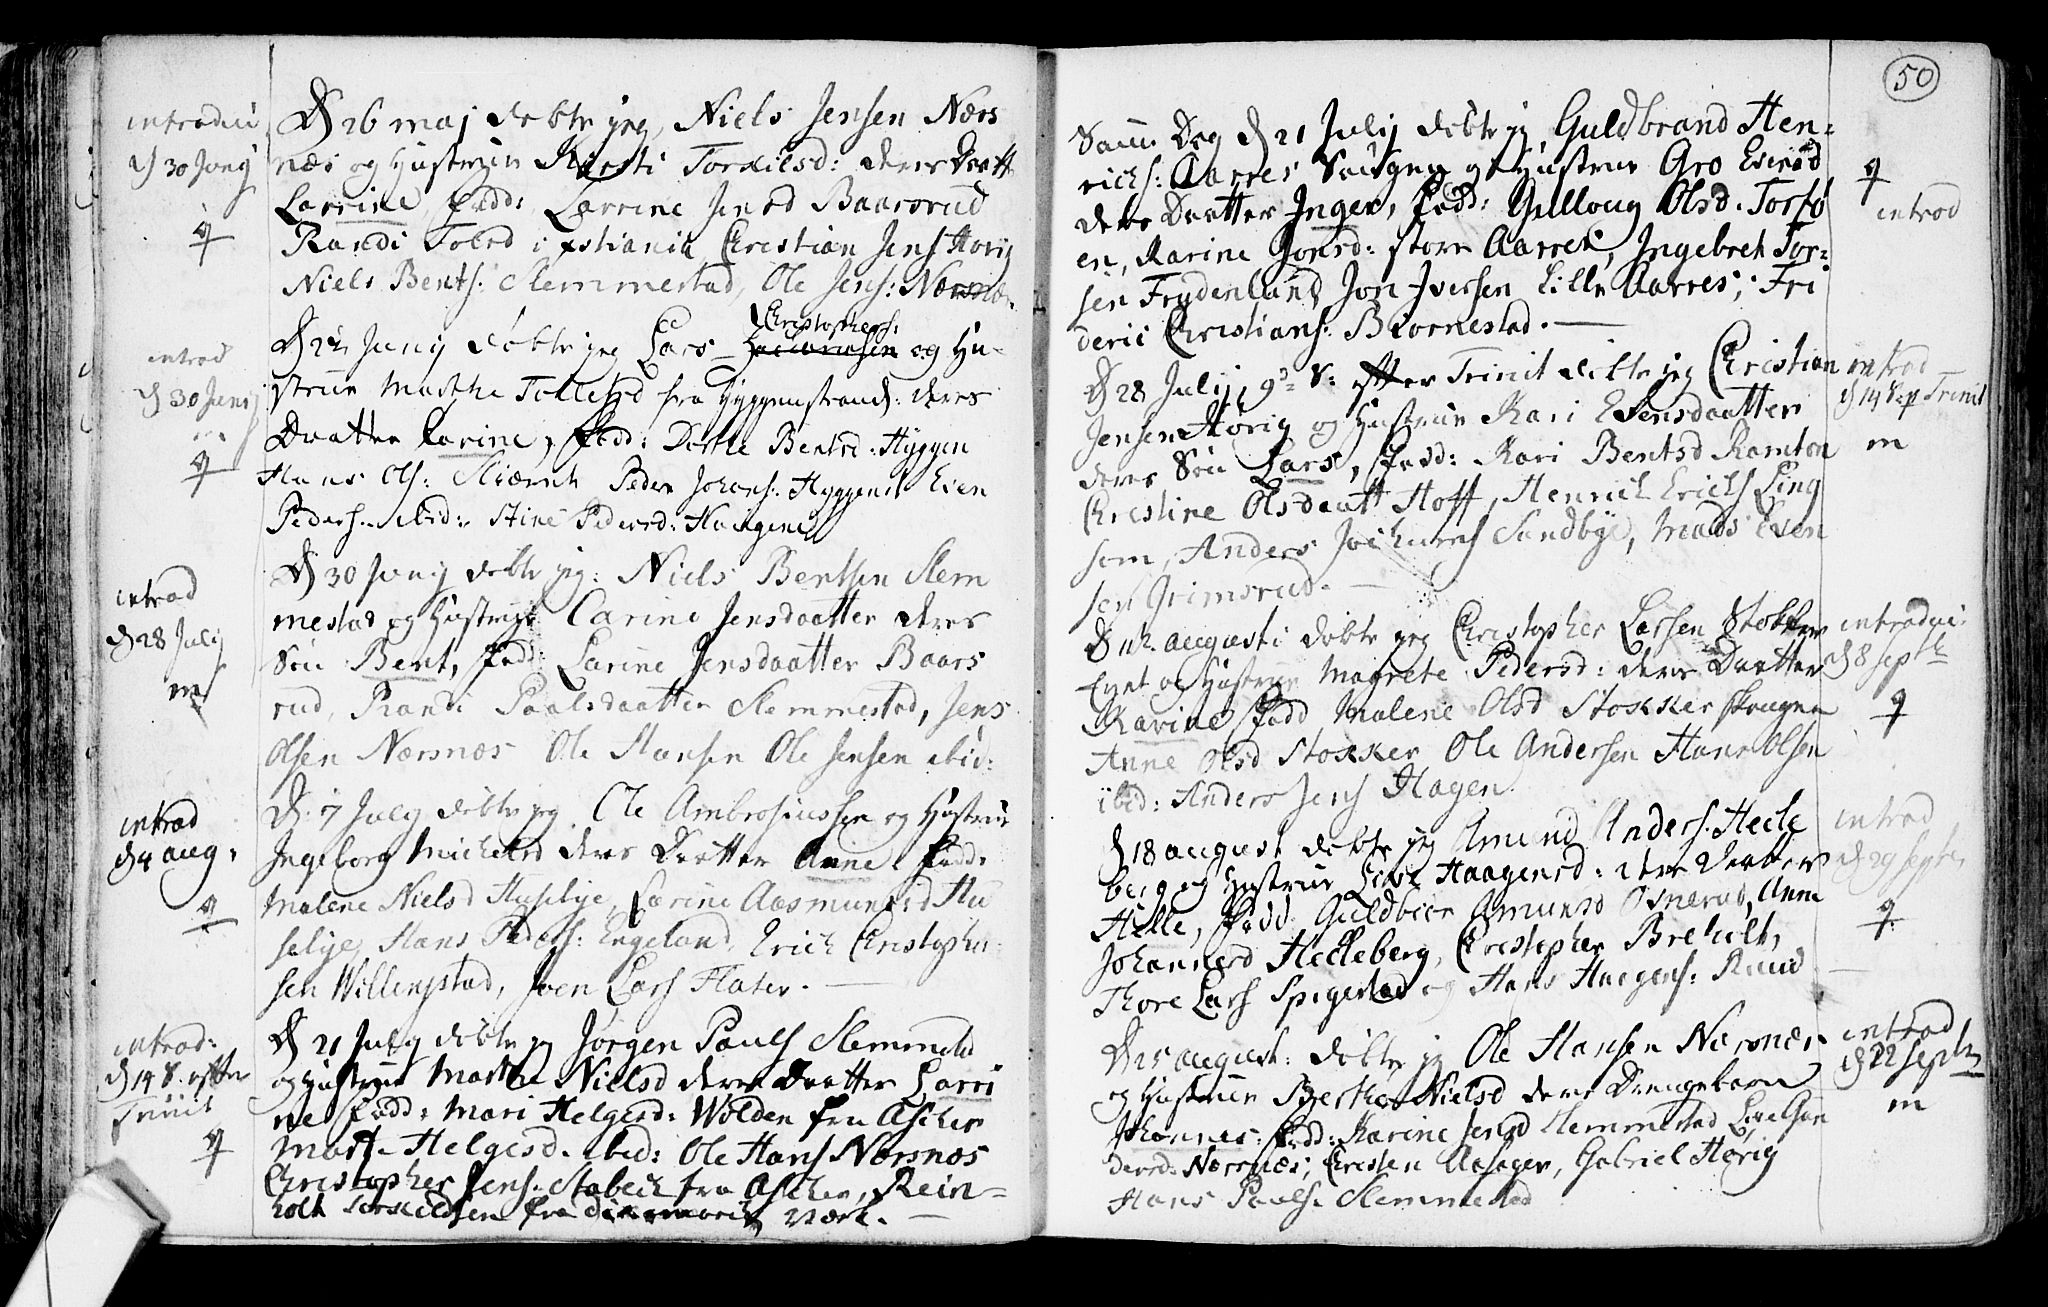 introdu
d 30 Junij
D 26 maj döbte jeg, Niels Jensen Nærs
næs og Hustrue Kirsti Torkilsd: deres Daatt
Larrine, fadd: Larrine Jensd Baarsrud
Randi Tolsd i Xstiania, Christian Jens Horig
Niels Bents: Slemmestad, Ole Jens: Nærsnæs
introd
d 30 Junij
Christophers:
D 22 Junij döbte jeg Lars og Hu-
strue Marthe Tollefsd fra Hyggenstrand: deres
Daatter Karine, fadd: Dorthe Bentsd Hyggen
Hans Ols: Peder Johans: Hyggen Even
Peders. ibid: Stine Pedersd: Haugene
introd
d 28 Julij
m
D 30 Junij döbte jeg: Niels Bentsen Slem
mestad og Hustrue Carine Jensdaatter deres
Sön Bent, fadd: Larine Jensdaatter Baars
rud, Randi Paalsdaatter Slemmestad, Jens
Olsen Nærsnæs Ole Hansen Ole Jensen ibid:
introd
d 4 aug:
D: 7 July döbte jeg Ole Ambrosiussen og Hustrue
Ingeborg Michelsd deres Daatter Anne, fadd:
Malene Nielsd Huseby, Larine Aasmundsd Hu
selye, Hans Peders: Engeland, Erich Christopher
sen Willingstad, Joen Lars Flater.
introd:
d 14 S. efter
Trinit
D 21 July döbte jeg Jørgen Pauls Slemmestd
og Hustrue Marthe Nielsd deres Daatter Larri
ne fadd: Mari Helgesd: Wolden fra Ascher
Mart- Helgesd. ibid: Ole Hans Nærsnæs
Christopher Jens. Stabech fra Ascher, Rein-
holt Torkildsen fra værk.
50
Sam: Dag d 21 Julij döbte jeg Guldbrand Hen-
richs: Aarres og Hustrue Gro Eversd
deres Daatter Inger, fadd: Gulloug Olsd. Torsø
en, Karine Gonsd: store Aarres, Ingebret Tor-
sen Frydenlund, Jon Iversen Lille Aarres, Fri
derie Christians: Biørnestad.
introd
D 28 Julij, 9de S: efter Trinit döbte jeg Christian
Jensen Horig og Hustrue Kari Evensdaatter
deres Sön Lars, fadd: Kari Bentsd Ramton
Christine Olsdaatt Hoff, Henrich Erichs Ling
som, Anders Jochums Sundbye, Mads Even
sen Grimsrud.
introd
d 14 S ep Trinit
m
D 11. augusti döbte jeg Christopher Larsen Stokker
Eyet og Hustrue Magrete Pedersd: deres Daatter
Karine fadd Malene Olsd Stokker skougen
Anne Olsd Stokker Ole Andersen Hans Olsen
ibid: Anders Jens Hagen.
introdu:
d 8 septb
D 18 august döbte jeg Amund Anders. Heele
berg og Hustrue Live Haagensd: deres Daatter
Helle, fadd: Guldbior Amunsd Osnerud, Anne
Johannesd Helleberg, Christopher Breholt,
Thore Lars Spigestad og Hans Haagens: Ruud
introd
d 29 septbr
D 25 august: döbte jeg Ole Hansen Nærsnæs
og Hustrue Berthe Nielsd deres Drengebarn
Johannes: fadd: Karine Jensd Slemmestad Live Gun
dersd: Nærsnæs, Christen Aasager, Gabriel Hørig
Hans Pauls. Slemmestad
introd
d 22 septb
m